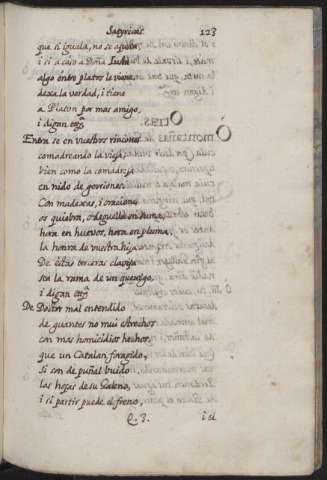 Satyricas. 123
que si iguala, no se aguba
i si a caso a Doña Iusta
algo entro platos le viene,
dexa la verdad, i tiene
a Platon por mas amigo,
i digan etc̃.
Entra se en vuestros rincones
comadreando la vieja,
bien como la comadreja
en nido de gorriones.
Con madexas, i oraciones
os quiebra, o deguella en suma,
hora en huevos, hora en pluma,
la honra de vuestra hija
De estas terceras clavija
sea la rama de un quexigo,
i digan etc̃.
De Doctor mal entendido
de guantes no mui estrechos
con mas homicidios hechos
que un Catalan foragido,
Si son de puñal buido
las hojas de su Galeno,
i si partir puede el freno,
Q. 3. i el